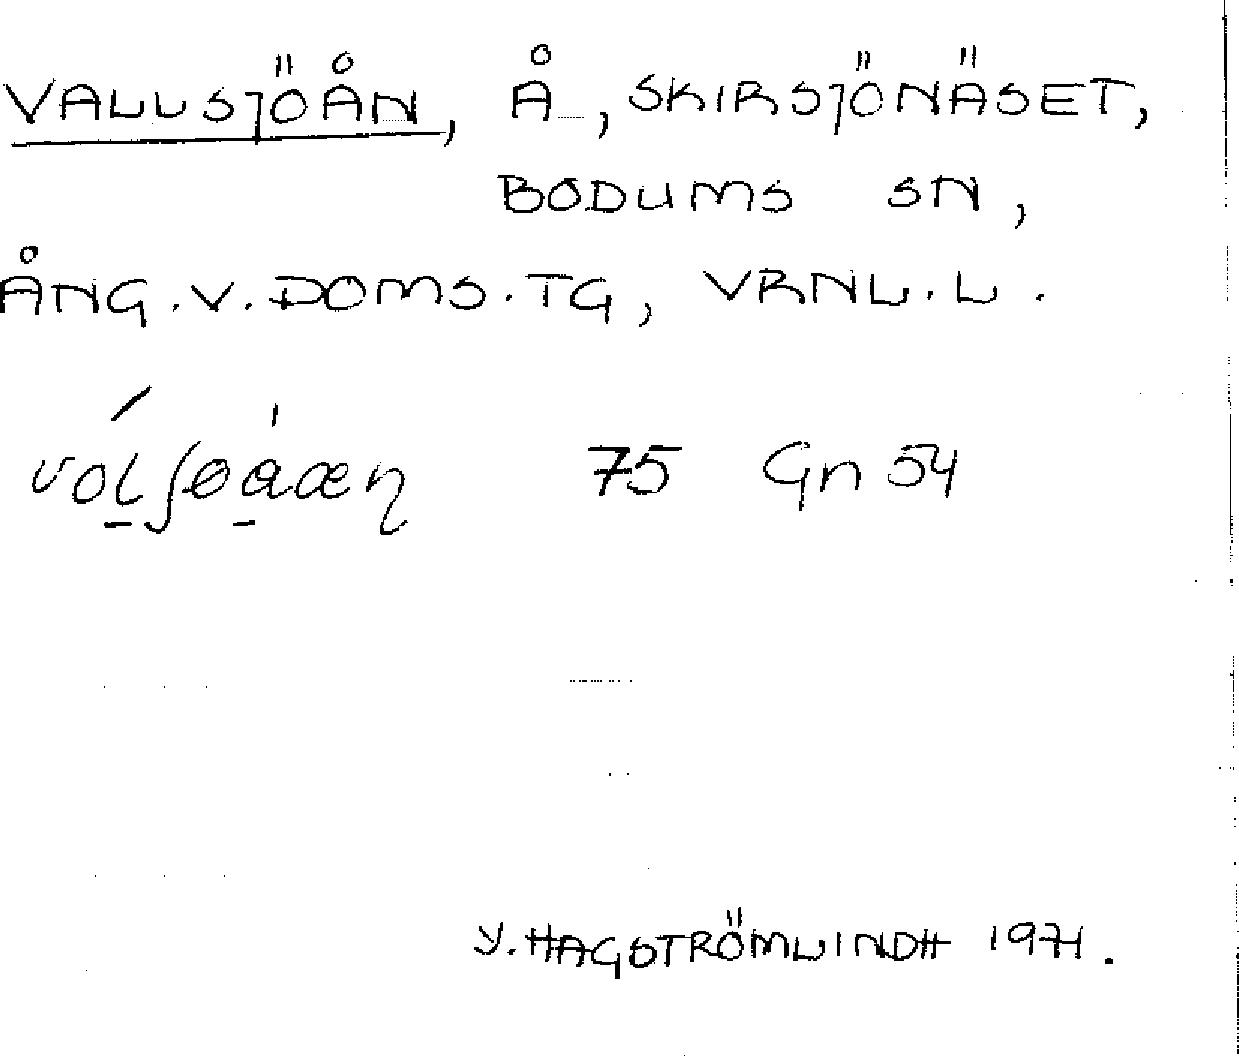 VALLSJÖÅN, Å, SKIRSJÖNÄSET,
BODUMS SN,
ÅNG.V.DOMS.TG, VRNL.L.
vólʃɵåæn 75 Gn 54
Y. HAGSTRÖMLINDH 1971.